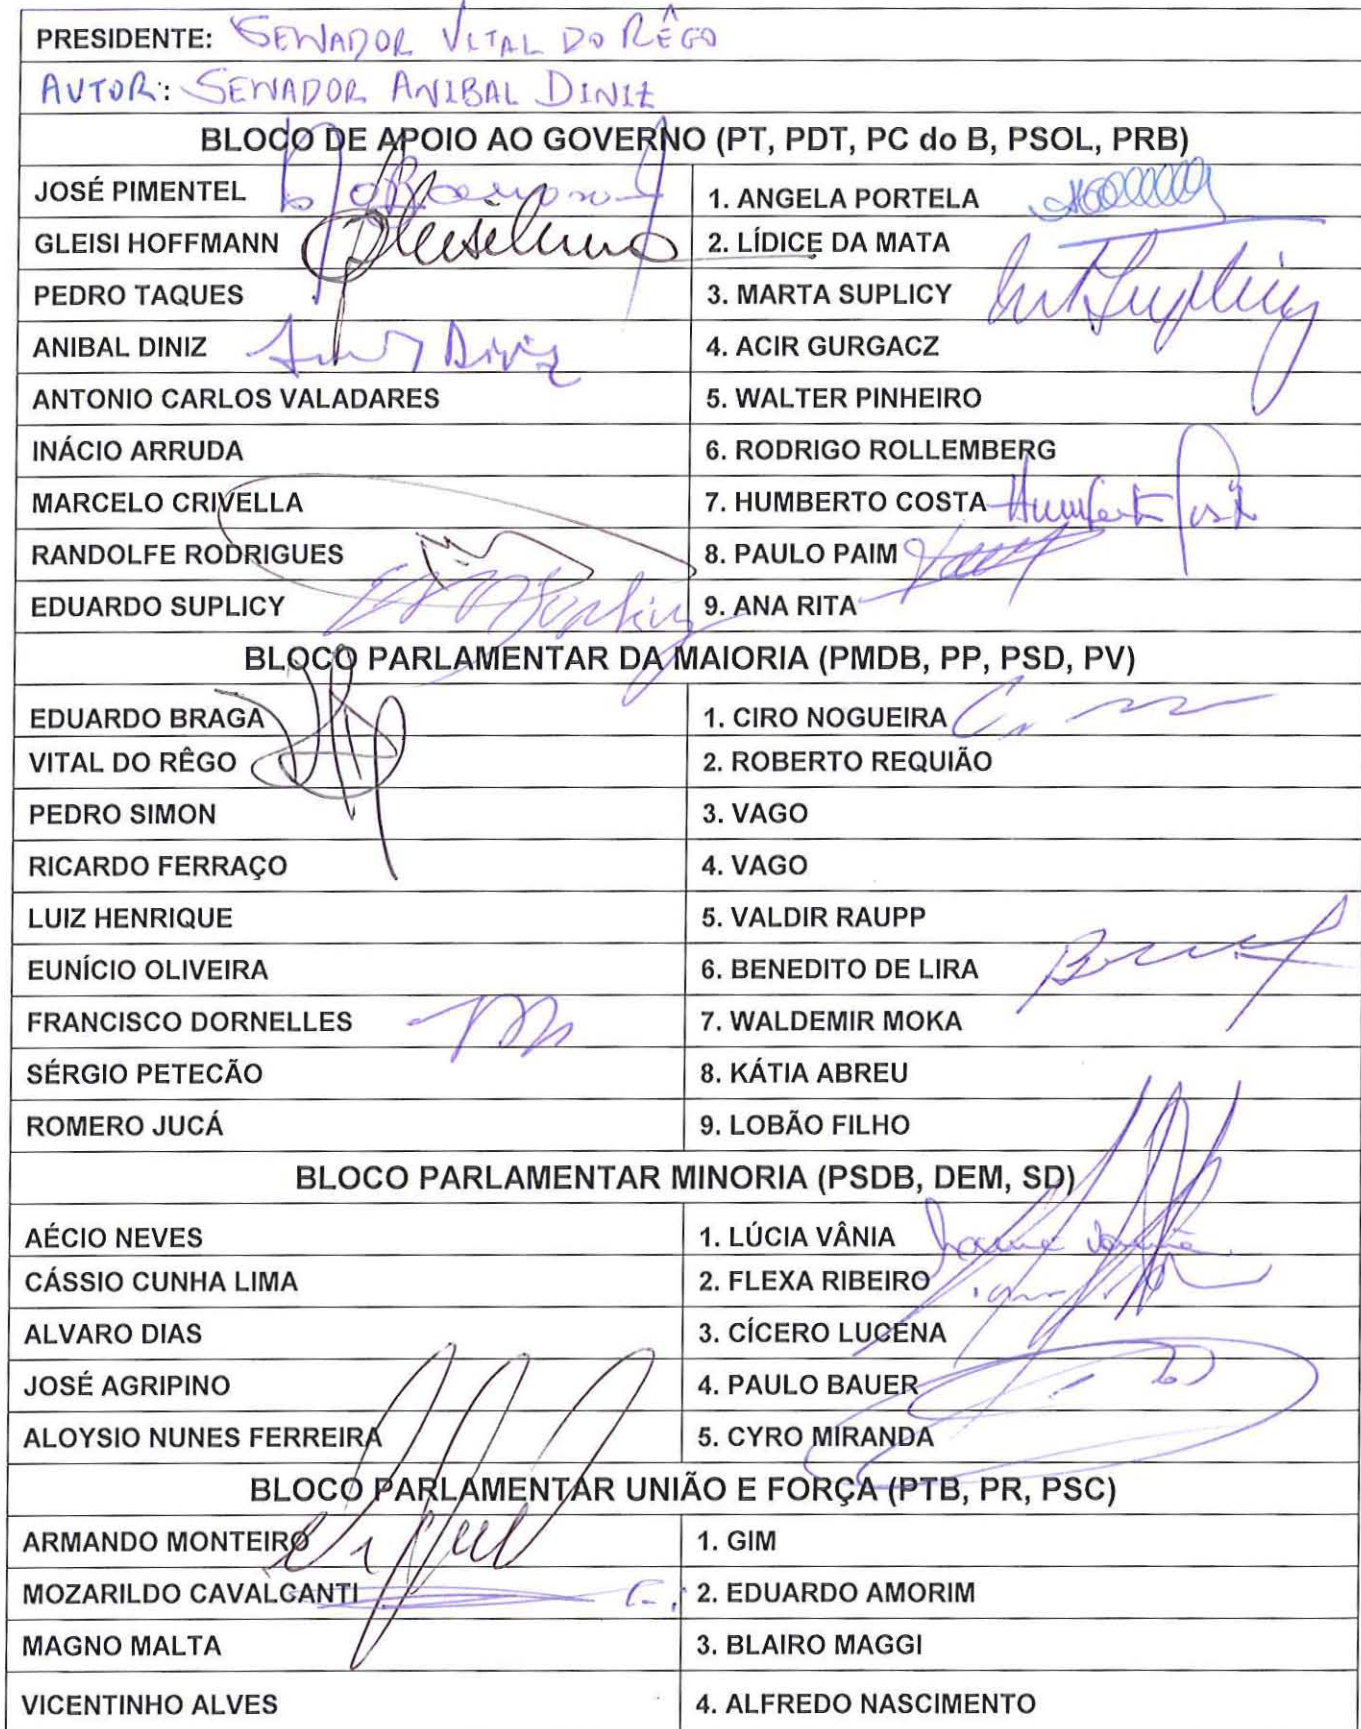 PRESIDENTE: SENADOR VITAL DO RÊGO
AUTOR: SENADOR ANIBAL DINIZ
BLOCO DE APOIO AO GOVERNO (PT, PDT, PC do B, PSOL, PRB)
JOSÉ PIMENTEL 1. ANGELA PORTELA
GLEISI HOFFMANN 2. LÍDICE DA MATA
PEDRO TAQUES 3. MARTA SUPLICY
ANIBAL DINIZ 4. ACIR GURGACZ
ANTONIO CARLOS VALADARES 5. WALTER PINHEIRO
INÁCIO ARRUDA 6. RODRIGO ROLLEMBERG
MARCELO CRIVELLA 7. HUMBERTO COSTA Humberto Costa
RANDOLFE RODRIGUES 8. PAULO PAIM
EDUARDO SUPLICY 9. ANA RITA
BLOCO PARLAMENTAR DA MAIORIA (PMDB, PP, PSD, PV)
EDUARDO BRAGA 1. CIRO NOGUEIRA
VITAL DO RÊGO 2. ROBERTO REQUIÃO
PEDRO SIMON 3. VAGO
RICARDO FERRAÇO 4. VAGO
LUIZ HENRIQUE 5. VALDIR RAUPP
EUNÍCIO OLIVEIRA 6. BENEDITO DE LIRA
FRANCISCO DORNELLES 7. WALDEMIR MOKA
SÉRGIO PETECÃO 8. KÁTIA ABREU
ROMERO JUCÁ 9. LOBÃO FILHO
BLOCO PARLAMENTAR MINORIA (PSDB, DEM, SD)
AÉCIO NEVES 1. LÚCIA VÂNIA
CÁSSIO CUNHA LIMA 2. FLEXA RIBEIRO
ALVARO DIAS 3. CÍCERO LUCENA
JOSÉ AGRIPINO 4. PAULO BAUER
ALOYSIO NUNES FERREIRA 5. CYRO MIRANDA
BLOCO PARLAMENTAR UNIÃO E FORÇA (PTB, PR, PSC)
ARMANDO MONTEIRO 1. GIM
MOZARILDO CAVALCANTI 2. EDUARDO AMORIM
MAGNO MALTA 3. BLAIRO MAGGI
VICENTINHO ALVES 4. ALFREDO NASCIMENTO